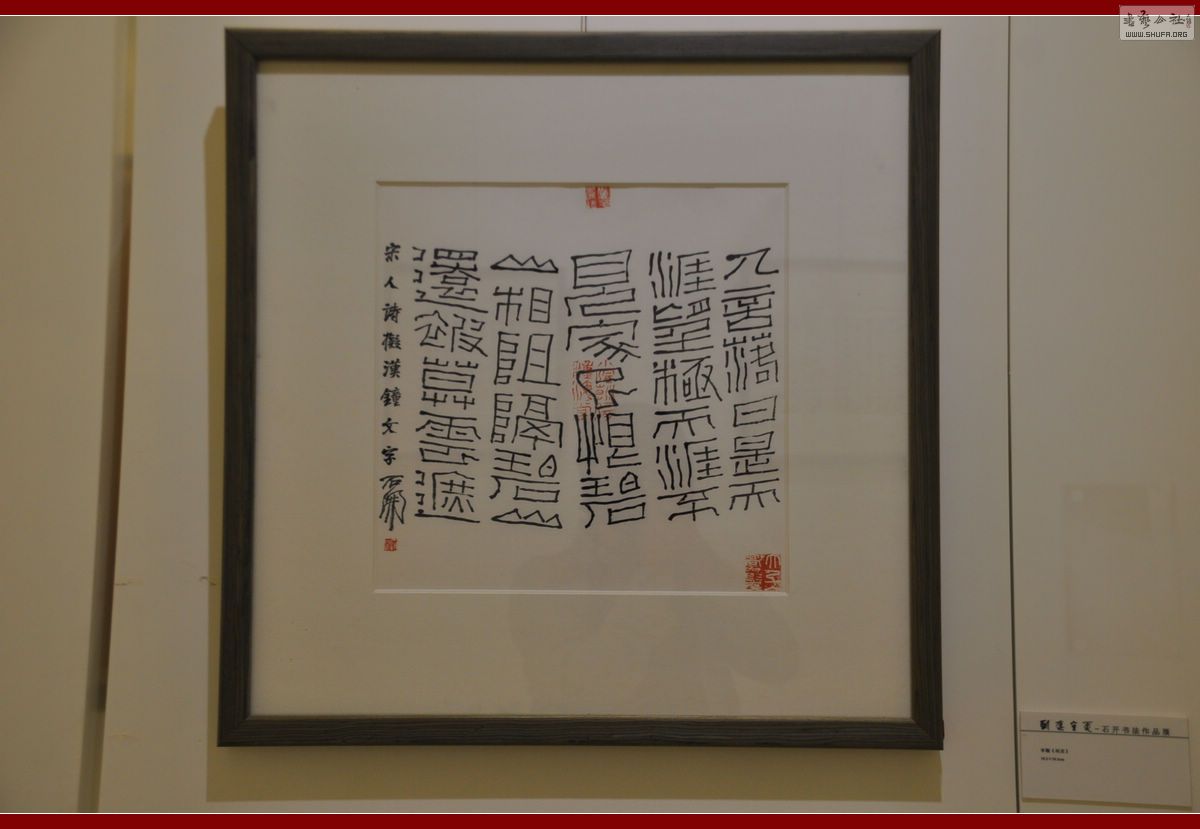 人言落日是天
涯望極天涯不
見家已恨碧
山相阻隔碧山
還被莫雲遮
宋人詩擬漢鐘文字 石開
石开书法作品展
书艺公社
WWW.SHUFA.ORG